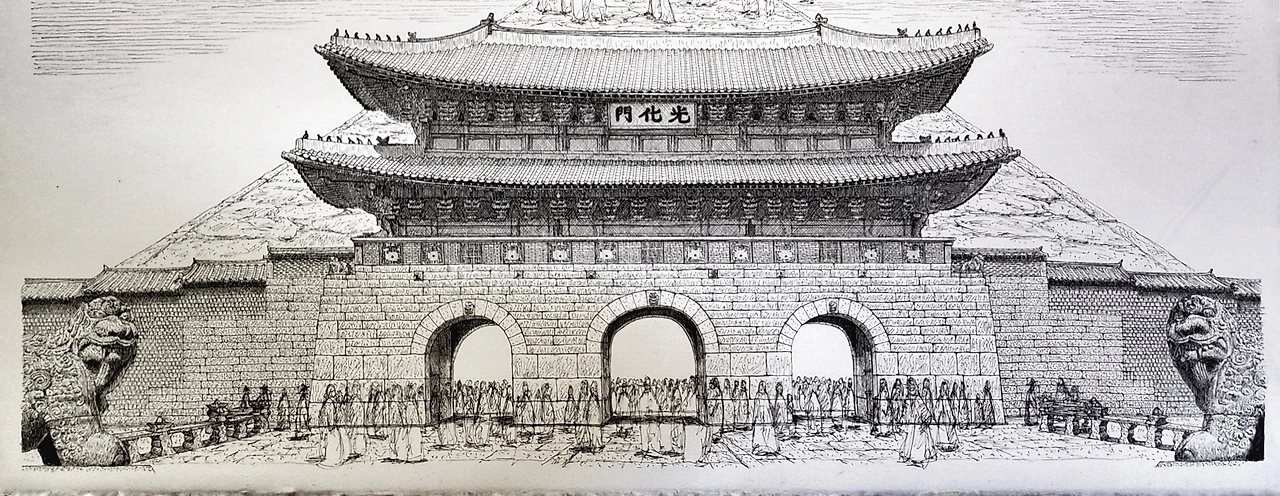 光化門